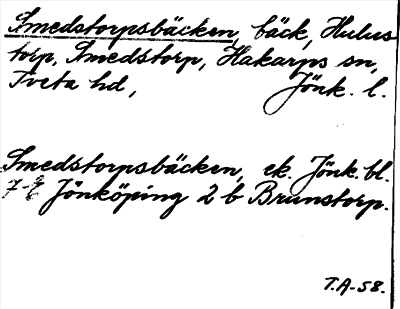 Smedstorpsbäcken, bäck, Hulus
torp, Smedstorp, Hakarps sn,
Tveta hd, Jönk. l.
Smedstorpsbäcken, ek. Jönk. bl.
Jönköping 2 b Brunstorp.
T.A-58.